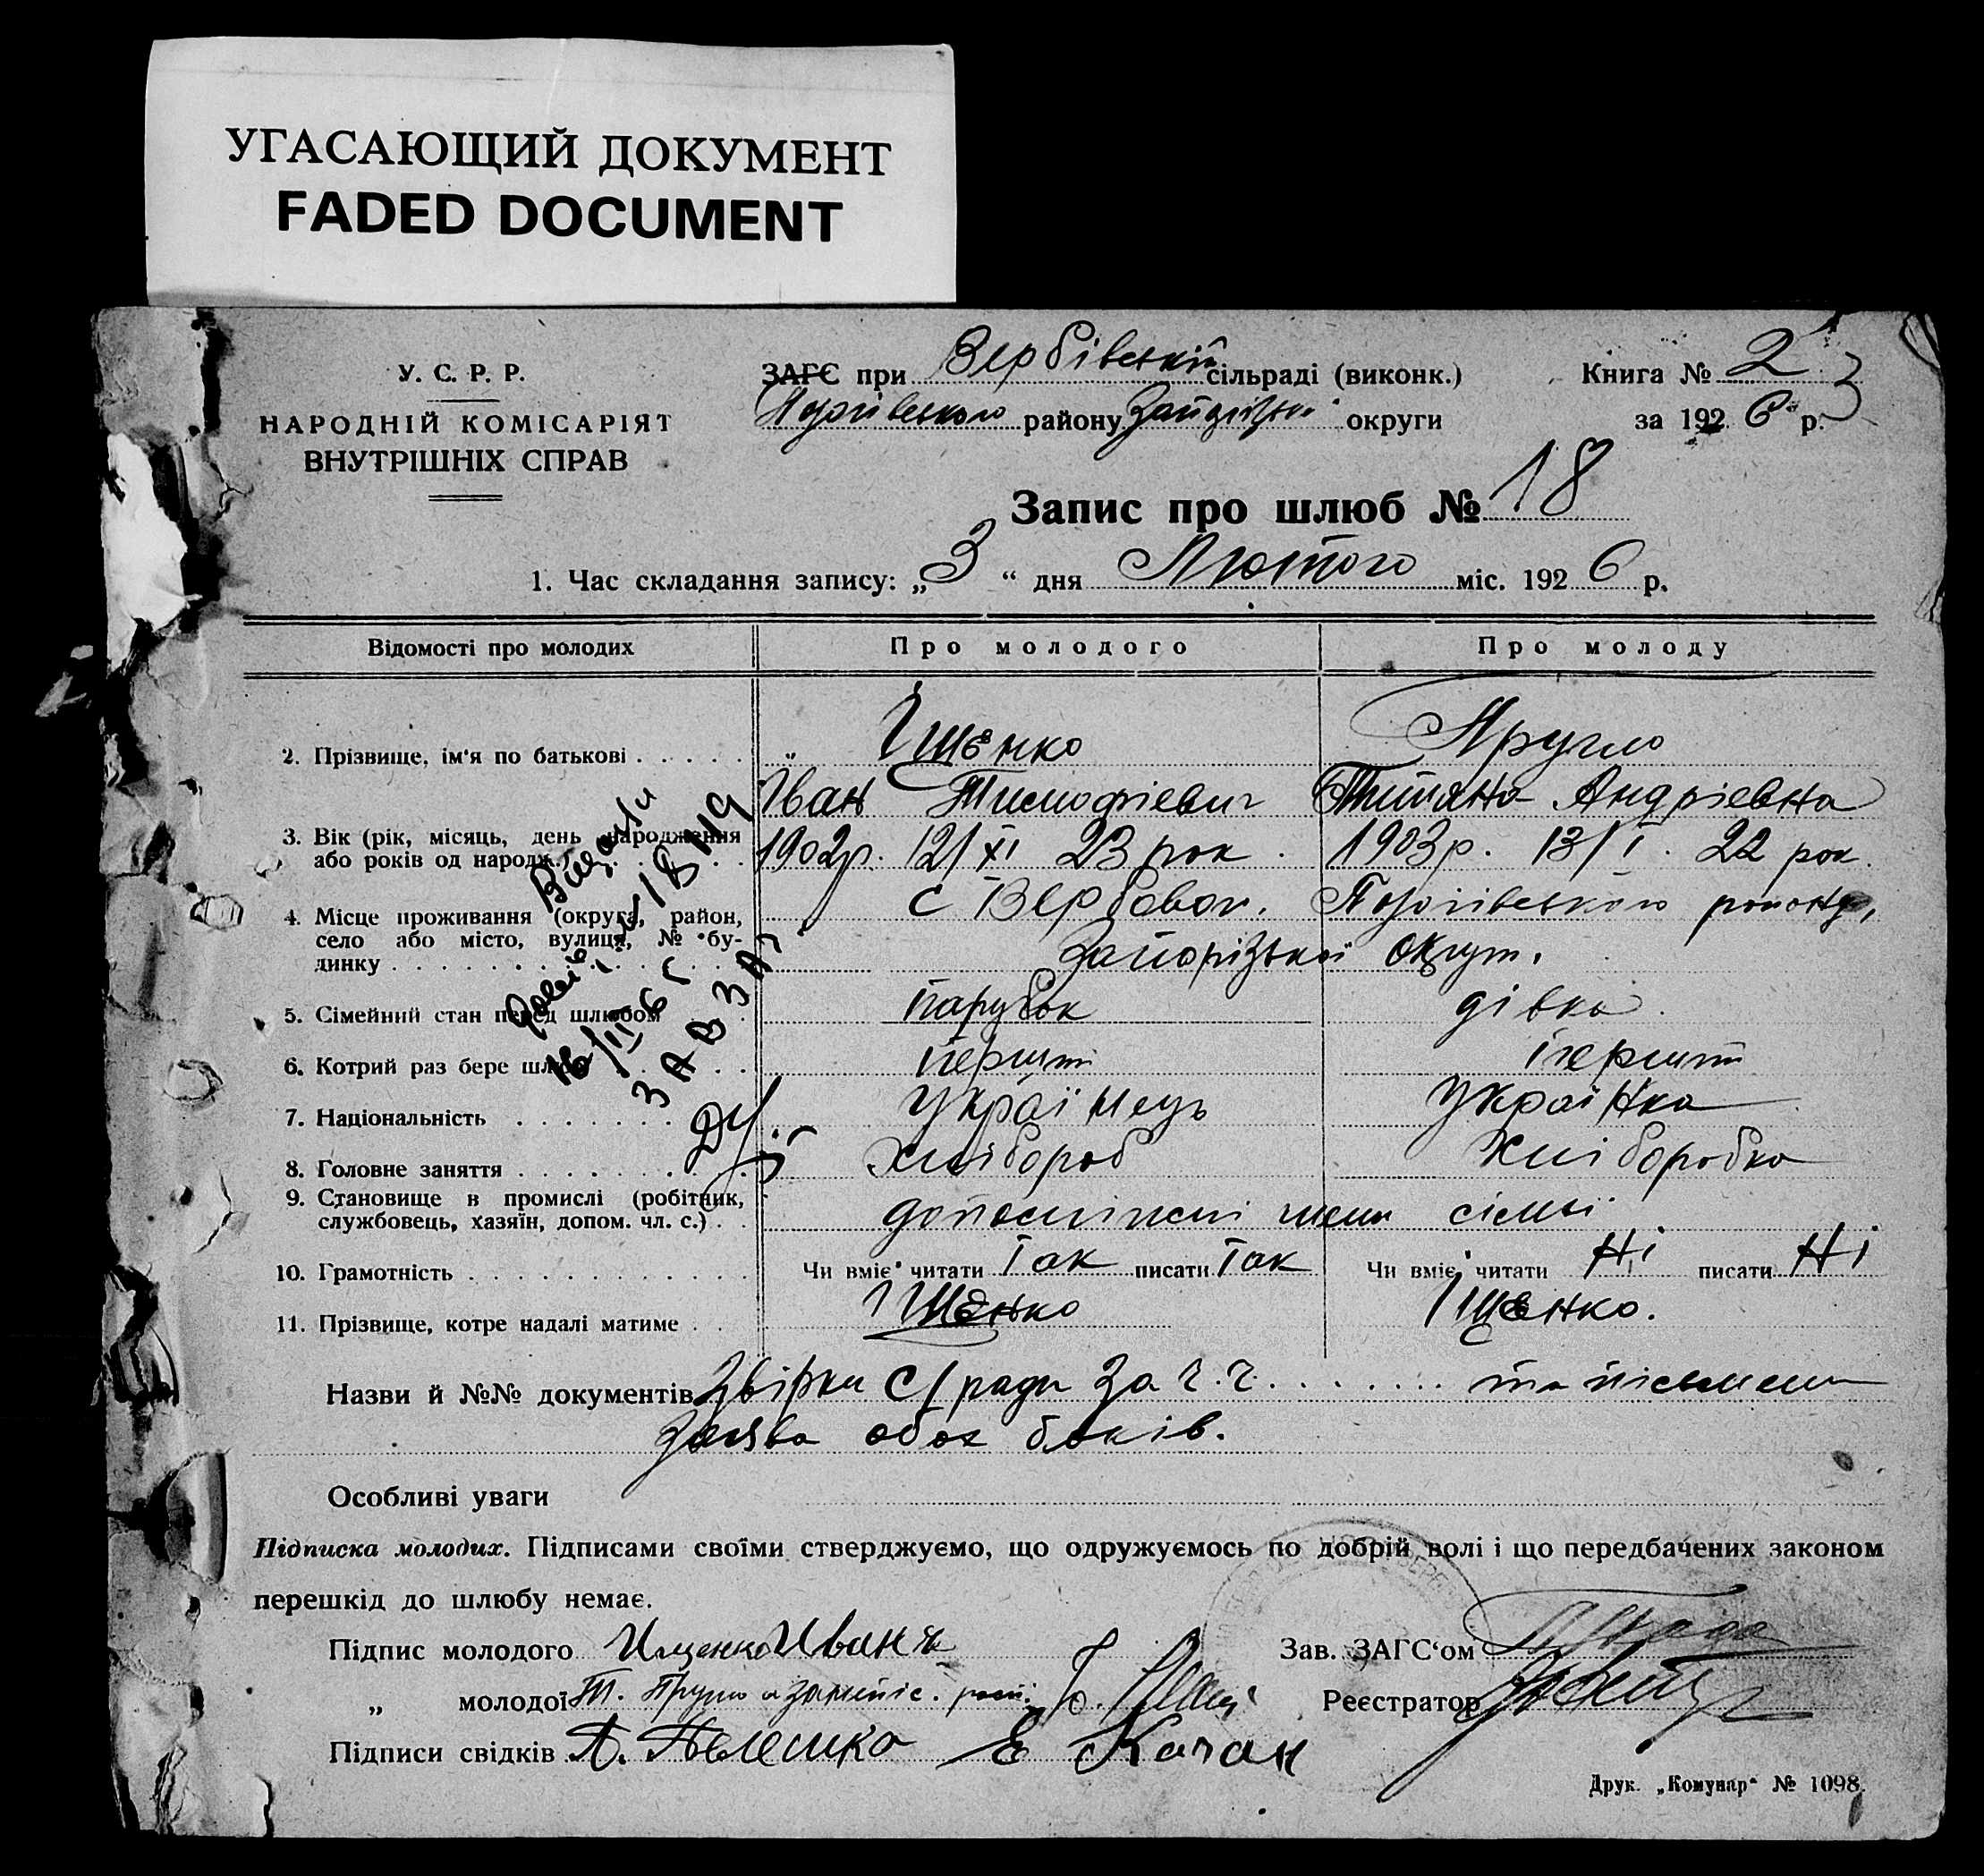 УГАСАЮЩИЙ ДОКУМЕНТ
FADED DOCUMENT
У. С. Р. Р.
НАРОДНІЙ КОМІСАРІЯТ
ВНУТРІШНІХ СПРАВ
ЗАГС при Вербівській сільраді (виконк.)
району округи
Книга № 2
за 1926 р.
3
Запис про шлюб № 18
1. Час складання запису: „3“ дня Лютого міс. 1926 р.
Відомості про молодих Про молодого Про молоду
2. Прізвище, ім'я по батькові Іщенко Пругло
Іван Тимофієвич Титяна Андрієвна
3. Вік (рік, місяць, день народження
або років од народж.) 1902р. 12/XI 23 рок. 1903р. 13/I. 22 рок.
4. Місце проживання (округа, район,
село або місто, вулиця, № бу-
динку
с Вербовом. Пологівського району,
Запорізької округи.
5. Сімейний стан перед шлюбом парубок дівка.
6. Котрий раз бере шлюб перший перший
7. Національність Українець Українка
8. Головне заняття Хлібороб Хліборобка
9. Становище в промислі (робітник,
службовець, хазяїн, допом. чл. с.) члени сімьї
10. Грамотність Чи вміє читати Так писати Так Чи вміє читати Ні писати Ні
11. Прізвище, котре надалі матиме Іщенко Іщенко.
Назви й №№ документів Звірки с/ради За ч. ч. ........ та письмени
заява обох боків.
Особливі уваги
Підписка молодих. Підписами своїми стверджуємо, що одружуємось по добрій волі і що передбачених законом
перешкід до шлюбу немає.
Підпис молодого Ищенко Иванъ
Зав. ЗАГС'ом
„ молодої Т. Пругло
Реєстратор
Підписи свідків Е Качан
Друк. „Комунар“ № 1098.